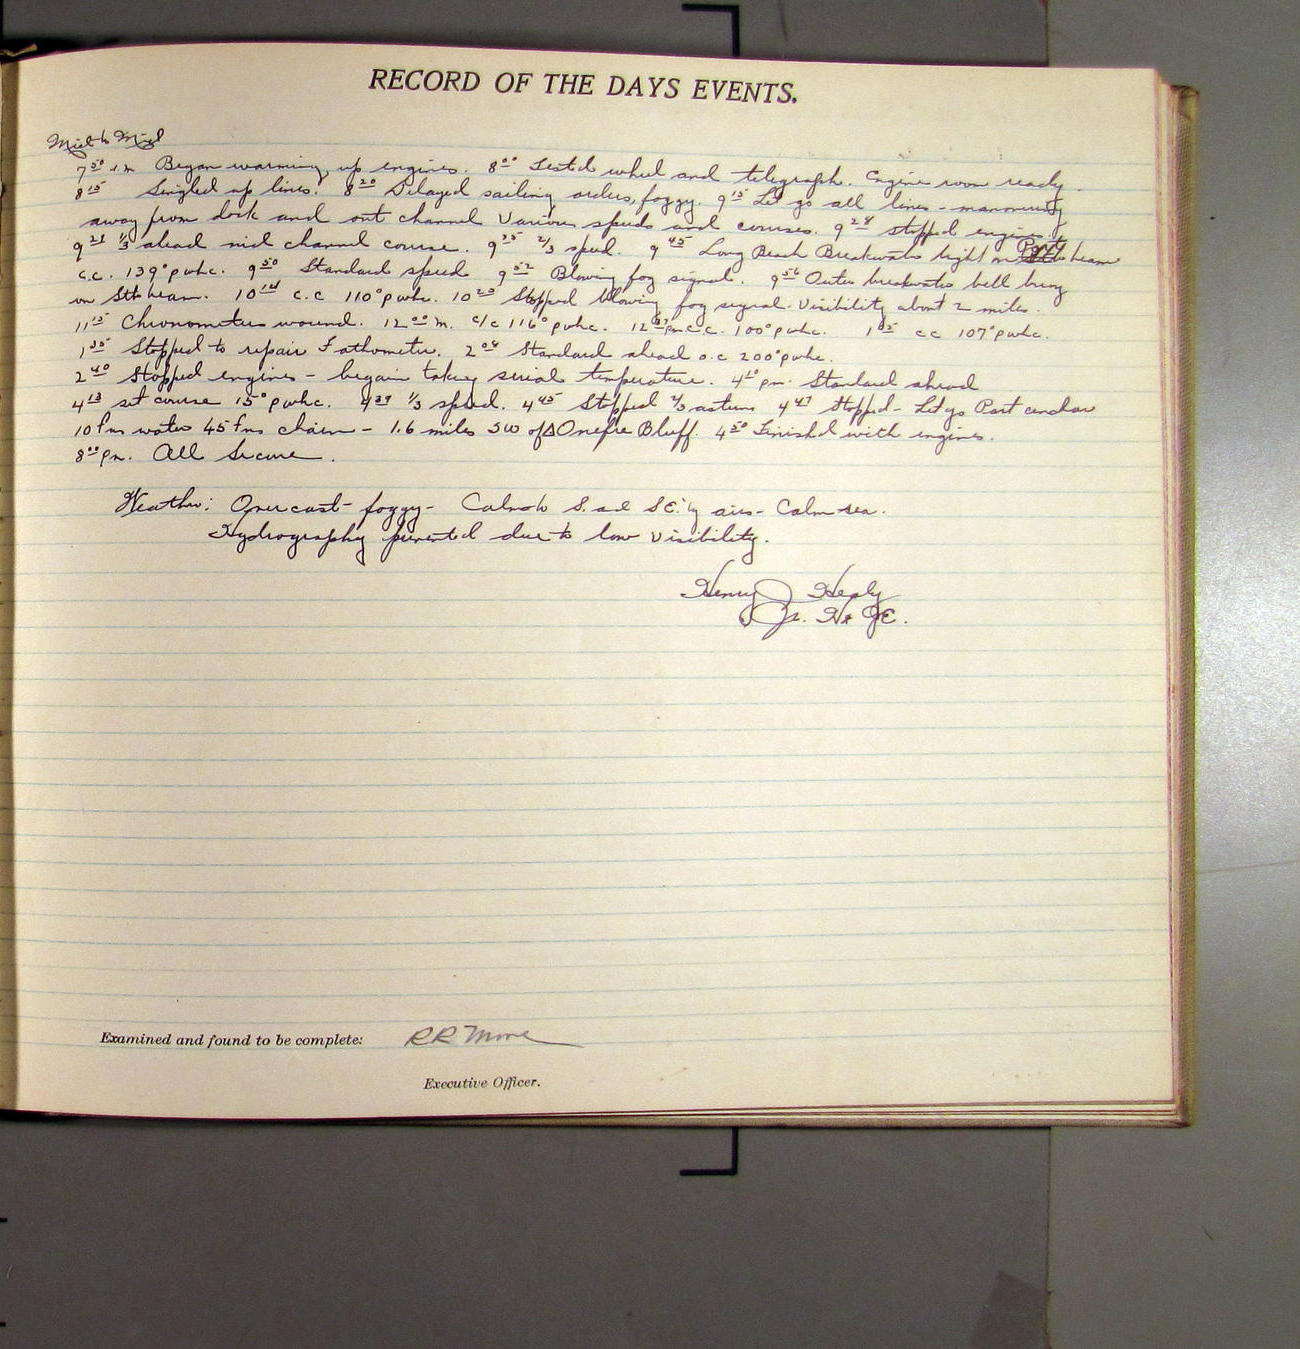 RECORD OF THE DAYS EVENTS.
Mid to Mid
7 50 a.m Began warming up engines. 8 00 Tested wheel and telegraph. Engine room ready.
8 15 Singled up lines. 8 20 Delayed sailing orders, foggy. 9 15 Let go all lines - manouvering
away from dock and out channel various speeds and courses. 9 28 stopped engines.
9 29 1/3 ahead mid channel course. 9 35 2/3 speed. 9 45 Long Beach Breakwater light on Port beam
c.c. 139° pwhc. 9 50 Standard speed 9 52 Blowing fog signal. 9 56 Outer breakwater bell buoy
on Stb beam. 10 14 c.c 110° pwhc. 10 25 Stopped blowing fog signal. Visibility about 2 miles.
11 15 Chronometers wound. 12 00 m. c/c 116° pwhc. 12 pm c.c. 100° pwhc. 1 25 cc 107° pwhc.
1 35 Stopped to repair Fathometer. 2 04 Standard ahead o.c 200° pwhc.
2 40 Stopped engines - began taking serial temperature. 4 10 pm. Standard ahead
4 13 set course 15° pwhc. 4 39 1/3 speed. 4 45 Stopped 2/3 astern 4 47 Stopped - Let go Port anchor
10 fms water 45 fms chain - 1.6 miles SW of △ Onefre Bluff. 4 50 Finished with engines.
8 00 pm. All Secure.
Weather: Overcast - foggy - Calm to S. and SE.'ly airs - Calm sea.
Hydrography prevented due to low visibility.
Henry J. Healy
Jr. H & GE.
Examined and found to be complete: R R Moore
Executive Officer.